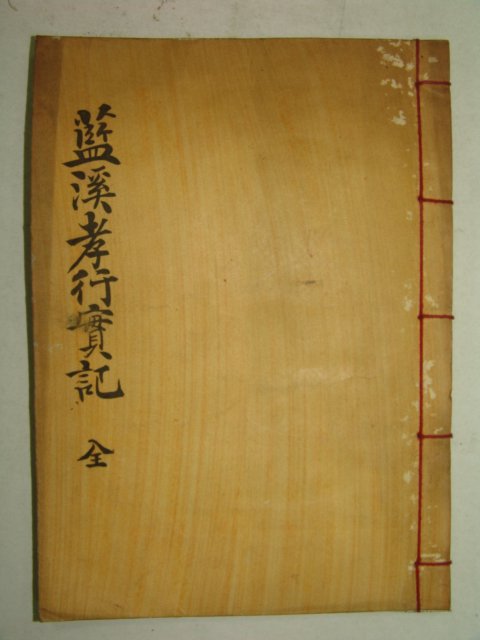 藍溪孝行實記 全